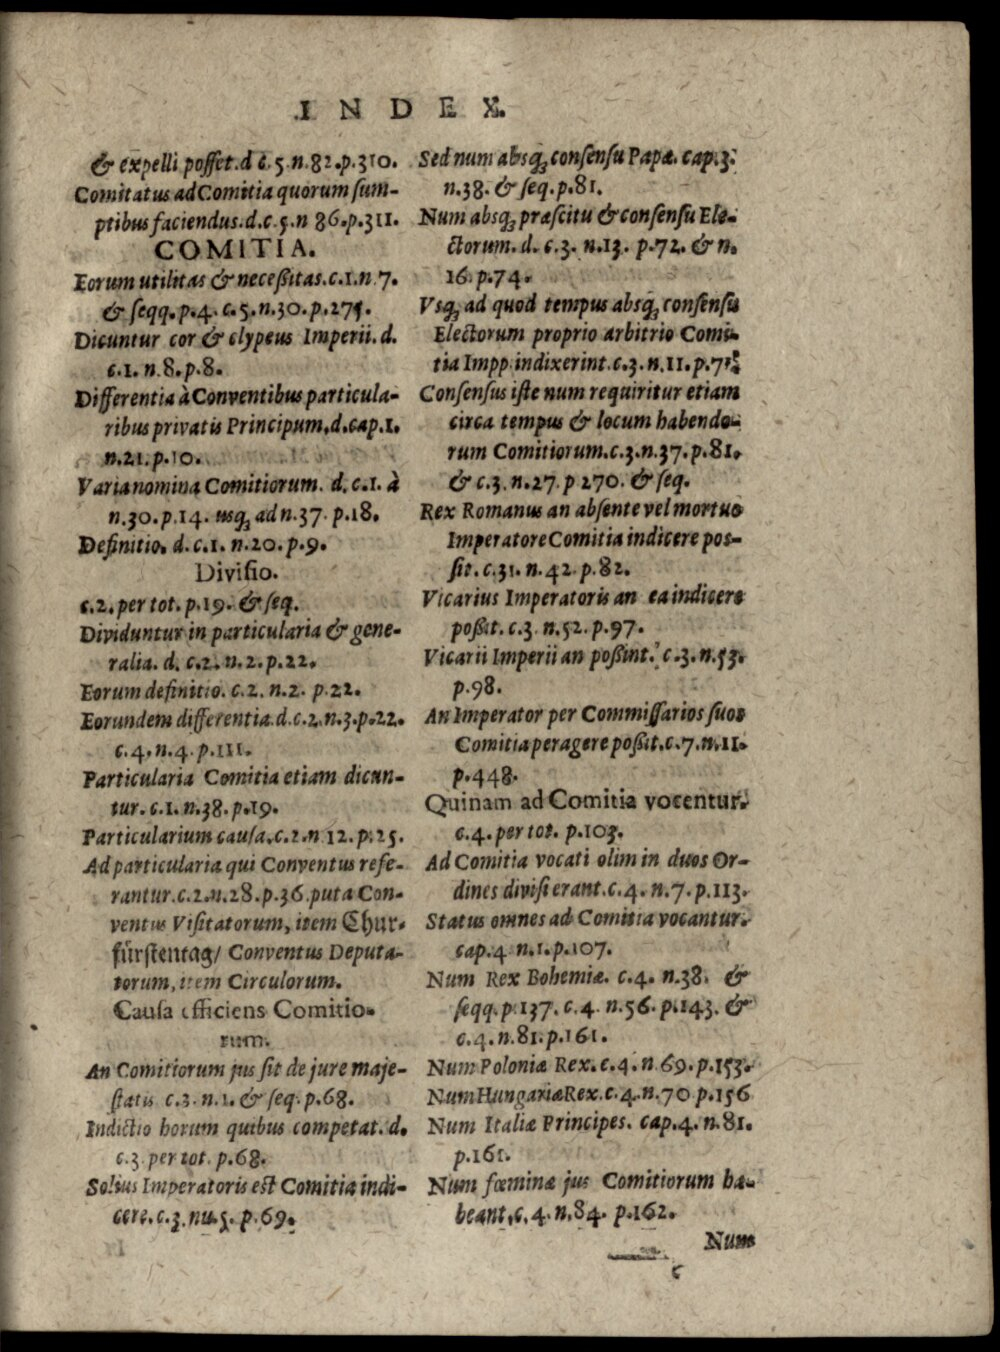 INDEX.
& expelli posset. d c. 5. n. 82. p. 310.
Comitatus ad Comitia quorum sum-
ptibus faciendus. d. c. 5. n 86. p. 311.
COMITIA.
Eorum utilitas & neceßitas. c. 1. n. 7.
& seqq. p. 4. c. 5. n. 30. p. 275.
Dicuntur cor & clypeus Imperii. d.
c. 1. n. 8. p. 8.
Differentia à Conventibus particula-
ribus privatis Principum, d. cap. 1.
n. 21. p. 10.
Varia nomina Comitiorum. d. c. 1. à
n. 30. p. 14. usq; ad n. 37. p. 18.
Definitio. d. c. 1. n. 20. p. 9.
Divisio.
c. 2. per tot. p. 19. & seq.
Dividuntur in particularia & gene-
ralia. d. c. 2. n. 2. p. 22.
Eorum definitio. c. 2. n. 2. p. 22.
Eorundem differentia. d. c. 2. n. 3. p. 22.
c. 4. n. 4. p. 111.
Particularia Comitia etiam dicun-
tur. c. 1. n. 38. p. 19.
Particularium causa. c. 2. n 12. p. 25.
Ad particularia qui Conventus refe-
rantur. c. 2. n. 28. p. 36. puta Con-
ventus Visitatorum, item Chur-
fürstentag/ Conventus Deputa-
torum, item Circulorum.
Causa efficiens Comitio-
rum.
An Comitiorum jus sit de jure maje-
statis c. 3. n. 1. & seq. p. 68.
Indictio horum quibus competat. d.
c. 3 per tot. p. 68.
Solius Imperatoris est Comitia indi-
cere. c. 3. nu. 5. p. 69.
Sed num absq; consensu Papæ. cap. 3.
n. 38. & seq. p. 81.
Num absq; præscitu & consensu Ele-
ctorum. d. c. 3. n. 13. p. 72. & n.
16. p. 74.
Vsq; ad quod tempus absq; consensu
Electorum proprio arbitrio Comi-
tia Impp. indixerint. c. 3. n. 11. p. 71.
Consensus iste num requiritur etiam
circa tempus & locum habendo-
rum Comitiorum. c. 3. n. 37. p. 81.
& c. 3. n. 27. p 270. & seq.
Rex Romanus an absente vel mortuo
Imperatore Comitia indicere pos-
sit. c. 31. n. 42. p. 82.
Vicarius Imperatoris an ea indicere
poßit. c. 3. n. 52. p. 97.
Vicarii Imperii an poßint. c. 3. n. 53.
p. 98.
An Imperator per Commissarios suos
Comitia peragere poßit. c. 7. n. 11.
p. 448.
Quinam ad Comitia vocentur.
c. 4. per tot. p. 103.
Ad Comitia vocati olim in duos Or-
dines divisi erant. c. 4. n. 7. p. 113.
Status omnes ad Comitia vocantur.
cap. 4 n. 1. p. 107.
Num Rex Bohemiæ. c. 4. n. 38. &
seqq. p 137. c. 4. n. 56. p. 143. &
c. 4. n. 81. p. 161.
Num Poloniæ Rex. c. 4. n 69. p. 153.
Num Hungariæ Rex. c. 4. n. 70 p. 156
Num Italiæ Principes. cap. 4. n. 81.
p. 161.
Num fœminæ jus Comitiorum ha-
beant, c. 4. n. 84. p. 162.
Num
c